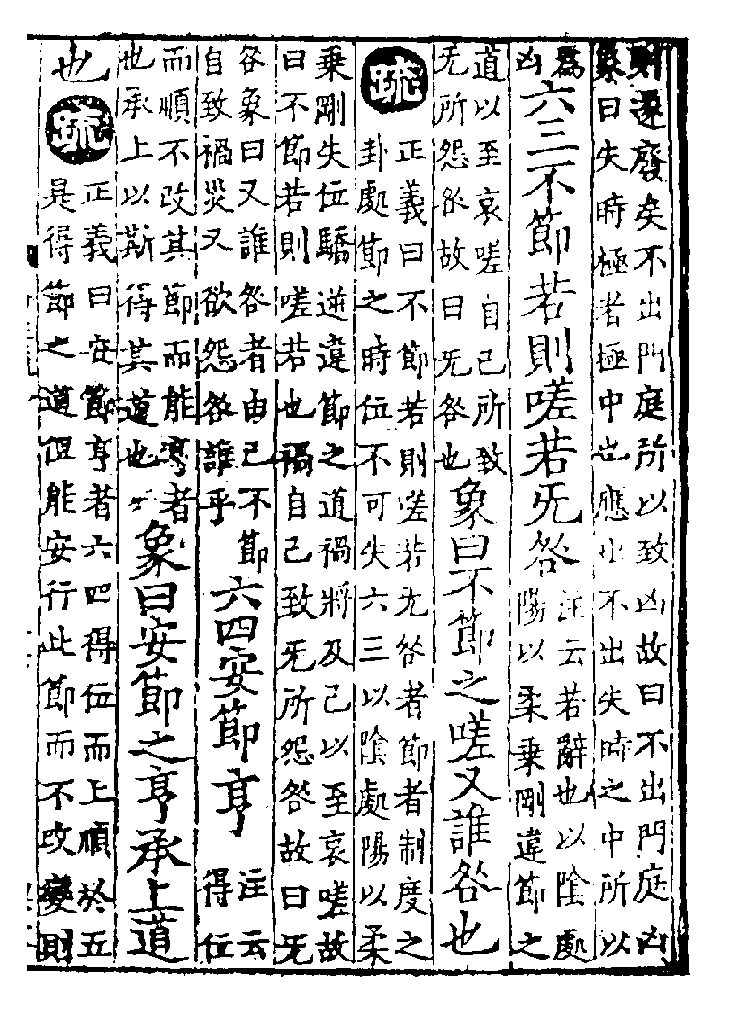 則遂廢矣不出門庭所以致凶故曰不出門庭凶
象曰失時極者極中也應出不出失時之中所以
為
凶
六三不節若則嗟若旡咎
注云若辭也以陰處
陽以柔乗剛違節之
道以至哀嗟自己所致
旡所怨咎故曰旡咎也
象曰不節之嗟又誰咎也
疏
正義曰不節若則嗟若无咎者節者制度之
卦處節之時位不可失六三以陰處陽以柔
乗剛失位驕逆違節之道禍將及己以至哀嗟故
曰不節若則嗟若也禍自己致旡所怨咎故曰旡
咎象曰又誰咎者由己不節
自致禍災又欲怨咎誰乎
六四安節亨
注云
得位
而順不改其節而能亨者
也承上以斯得其道也
象曰安節之亨承上道
也
疏
正義曰安節亨者六四得位而上順於五
是得節之道但能安行此節而不改變則